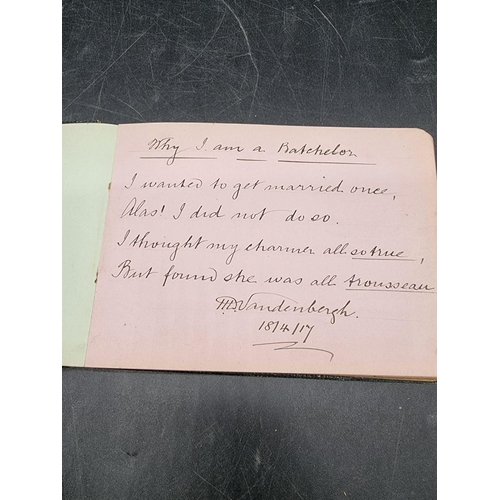 Why I am a Batchelor
I wanted to get married once,
Alas! I did not do so.
I thought my charmer all so true,
But found she was all trousseau
Vandenbergh.
18/4/17